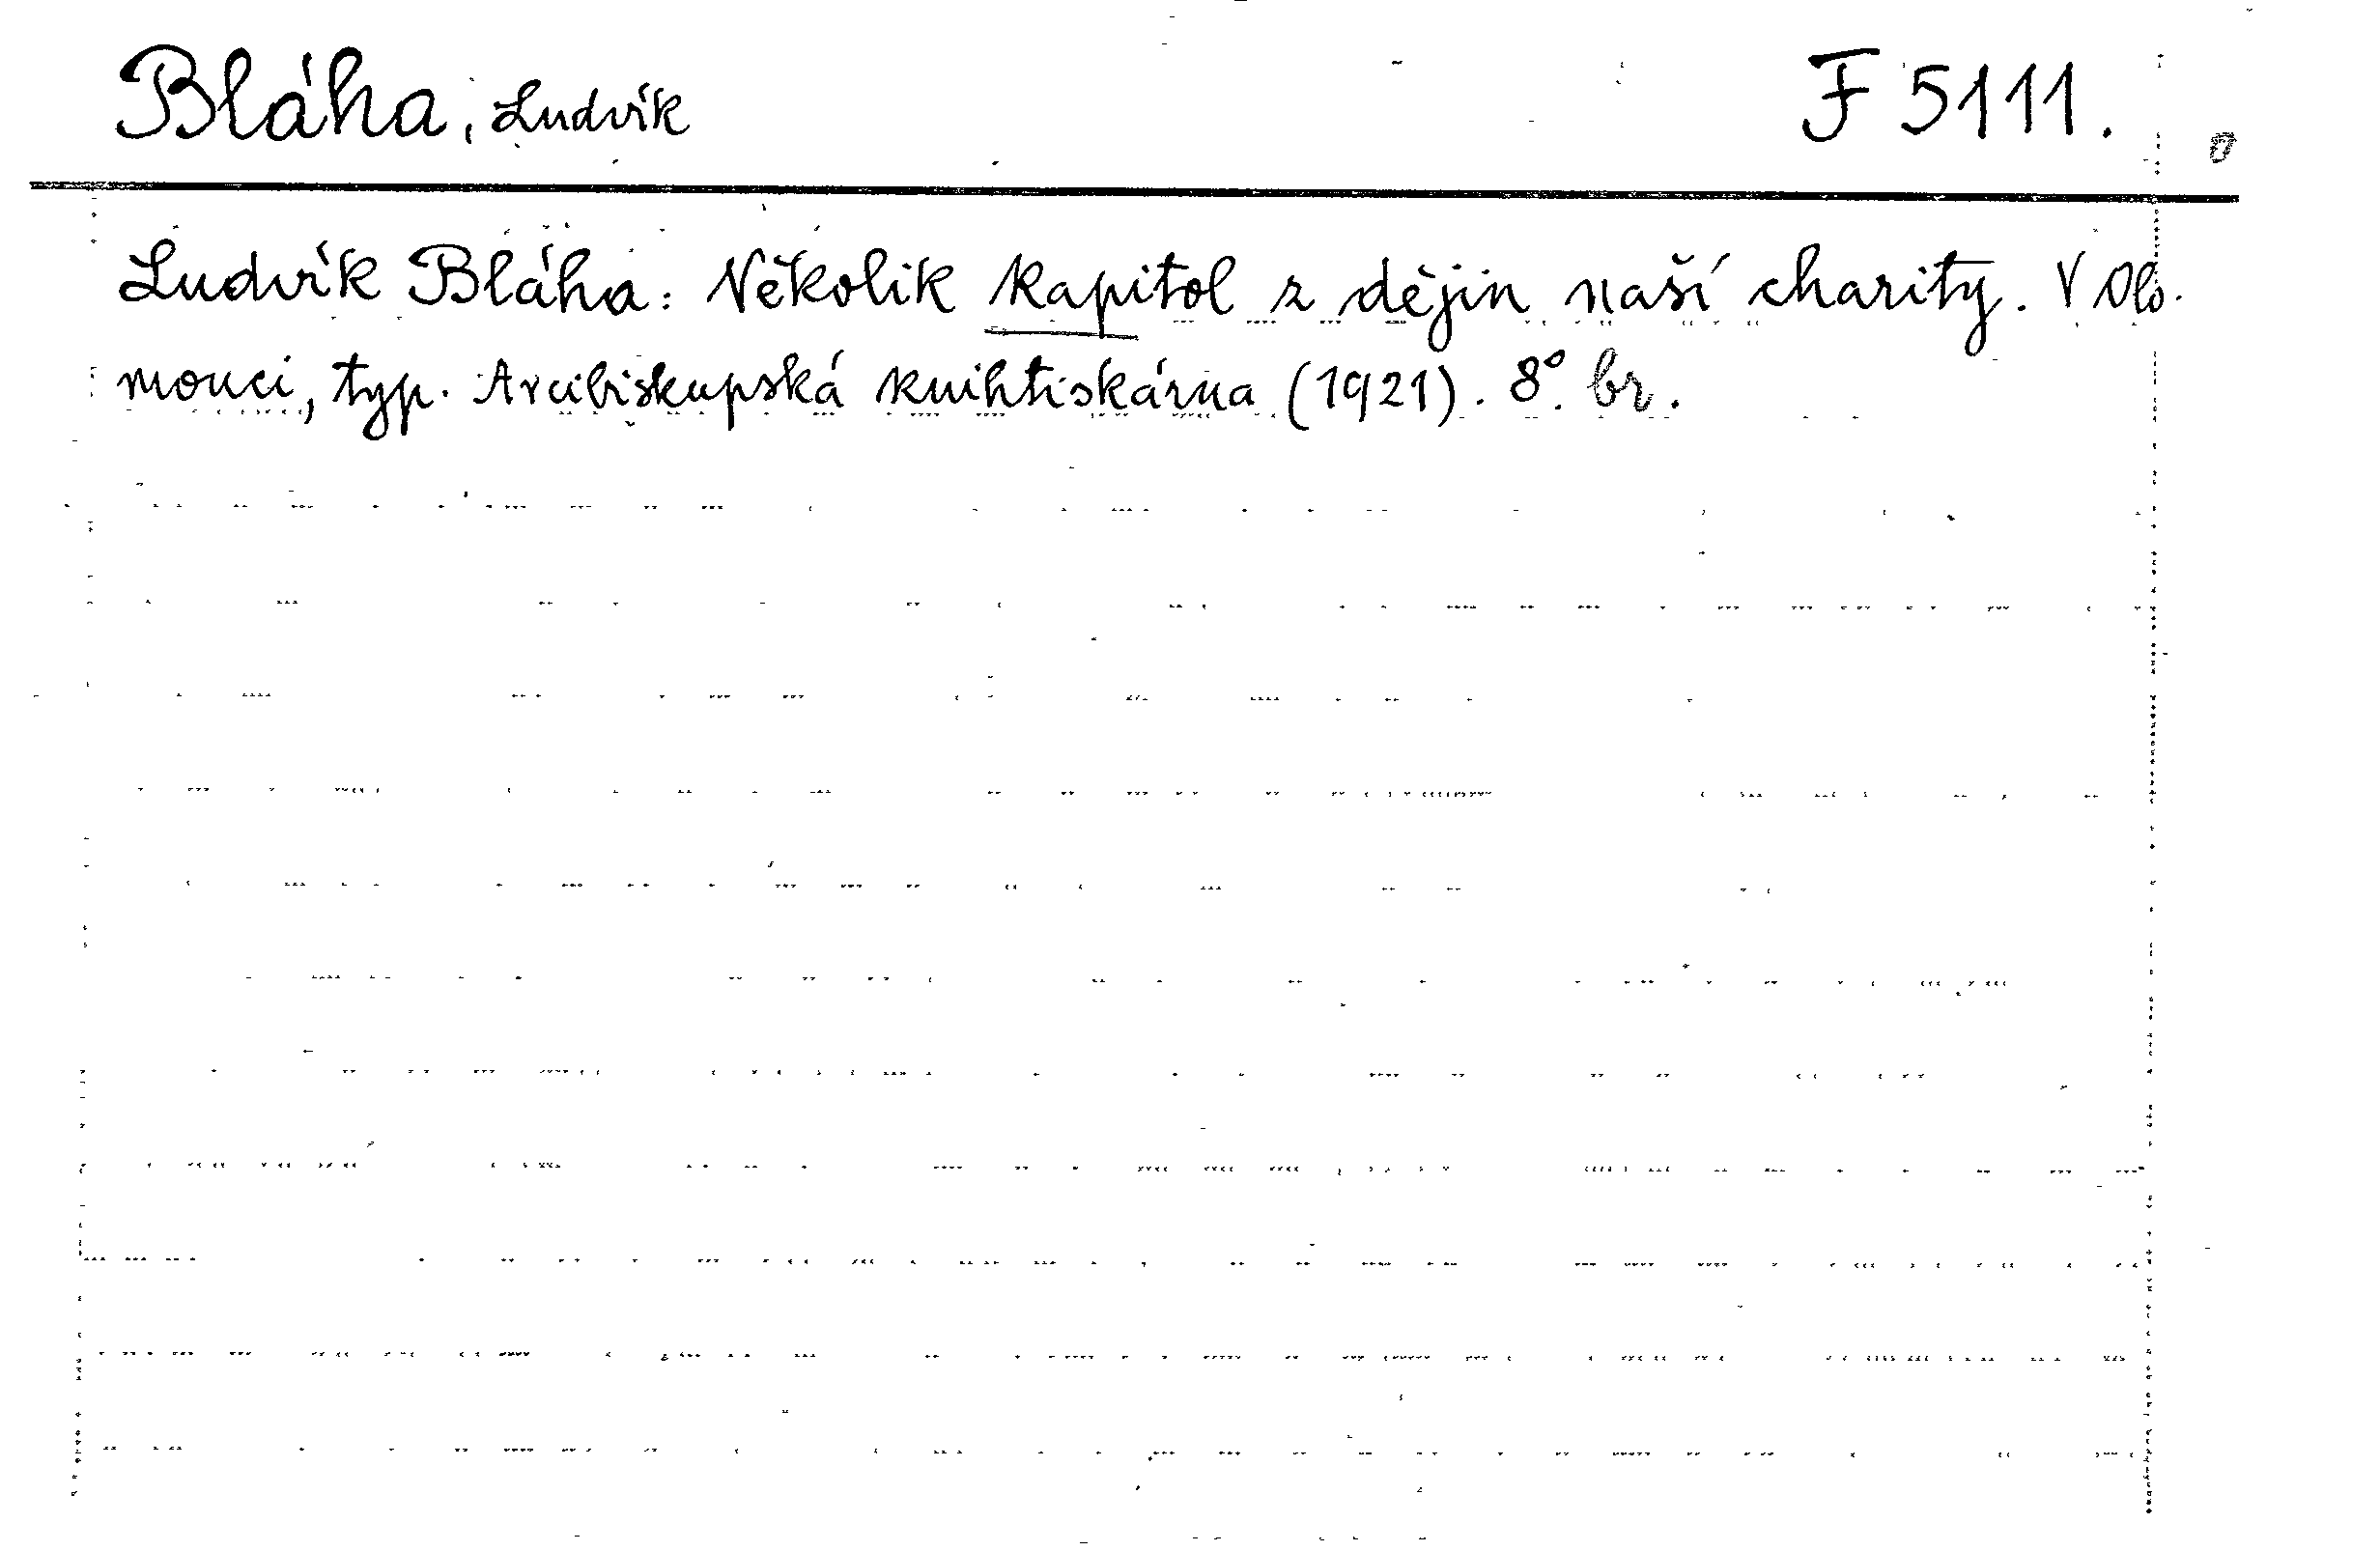 Bláha, Ludvík F 5111.
Ludvík Bláha: Několik kapitol z dějin naší charity. V Olo-
mouci, typ. Arcibiskupská knihtiskárna (1921). 8°. br.